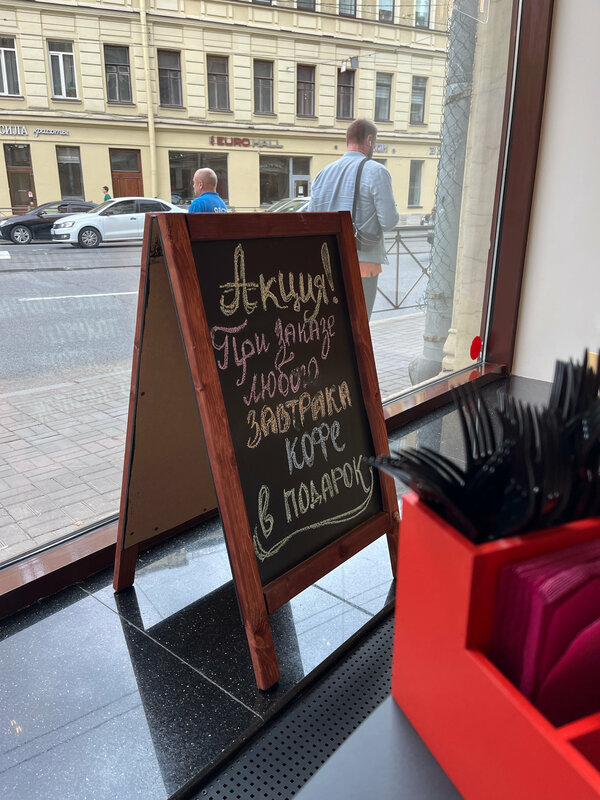 СИЛА красоты
EUROHALL
Акция!
При заказе
любого
завтрака
кофе
в подарок